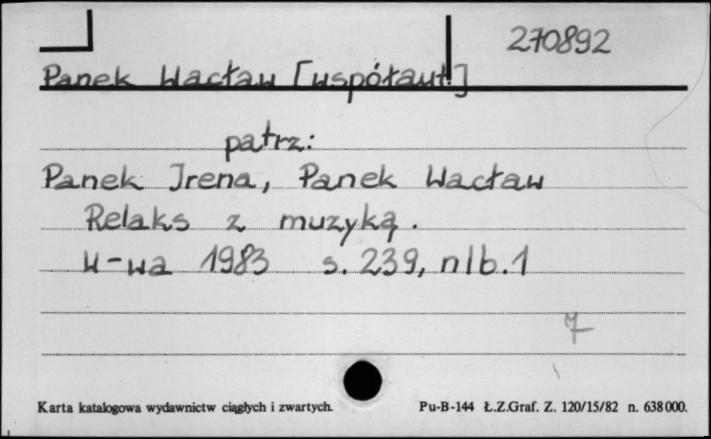 270892
Panek Wacław [współaut.]
patrz:
Panek Irena, Panek Wacław
Relaks z muzyką.
W-wa 1983 s. 239, nlb. 1
7
Karta katalogowa wydawnictw ciągłych i zwartych.
Pu-B-144 Ł.Z.Graf. Z. 120/15/82 n. 638000.